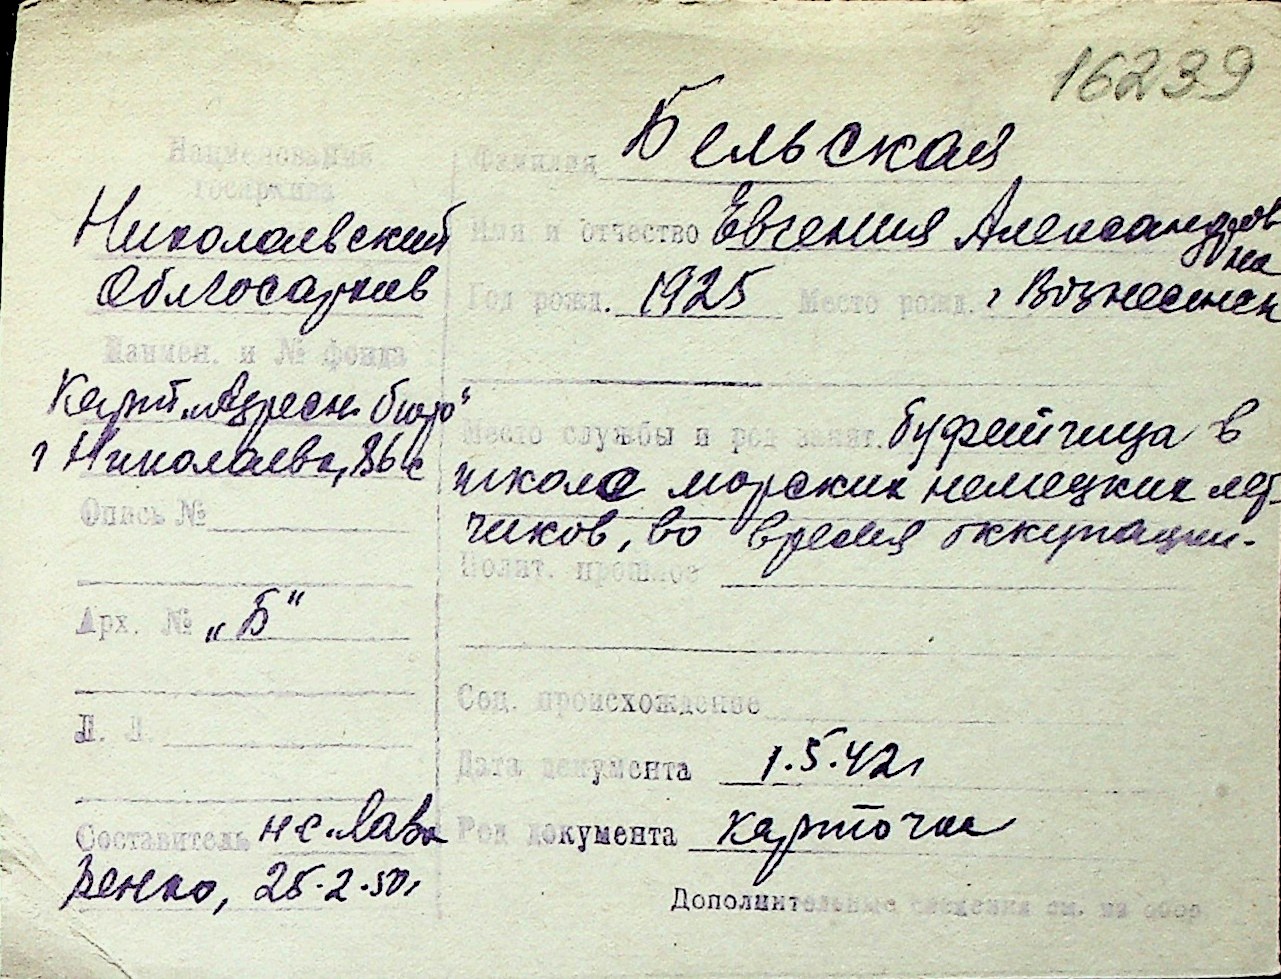 16239
Наименований
госархива
Николаевский
Облгосархив
Наимен. и № фонда
Карт. „Адресн. бюро"
г Николаева, 36 с
Опись №
Арх. № „Б"
Л. Л.
Составитель нс. Лавр
венко, 25.2.50г
Фамилия Бельская
Имя и отчество Евгения Александров
на
Год рожд. 1925 Место рожд. г Вознесенск
Место службы и род занят. буфетчица в
школе морских немецких лет-
чиков, во время оккупации.
Полит. прошлое
Соц. происхождение
Дата документа 1.5.42г
Род документа карточка
Дополнительные сведения см. на обор